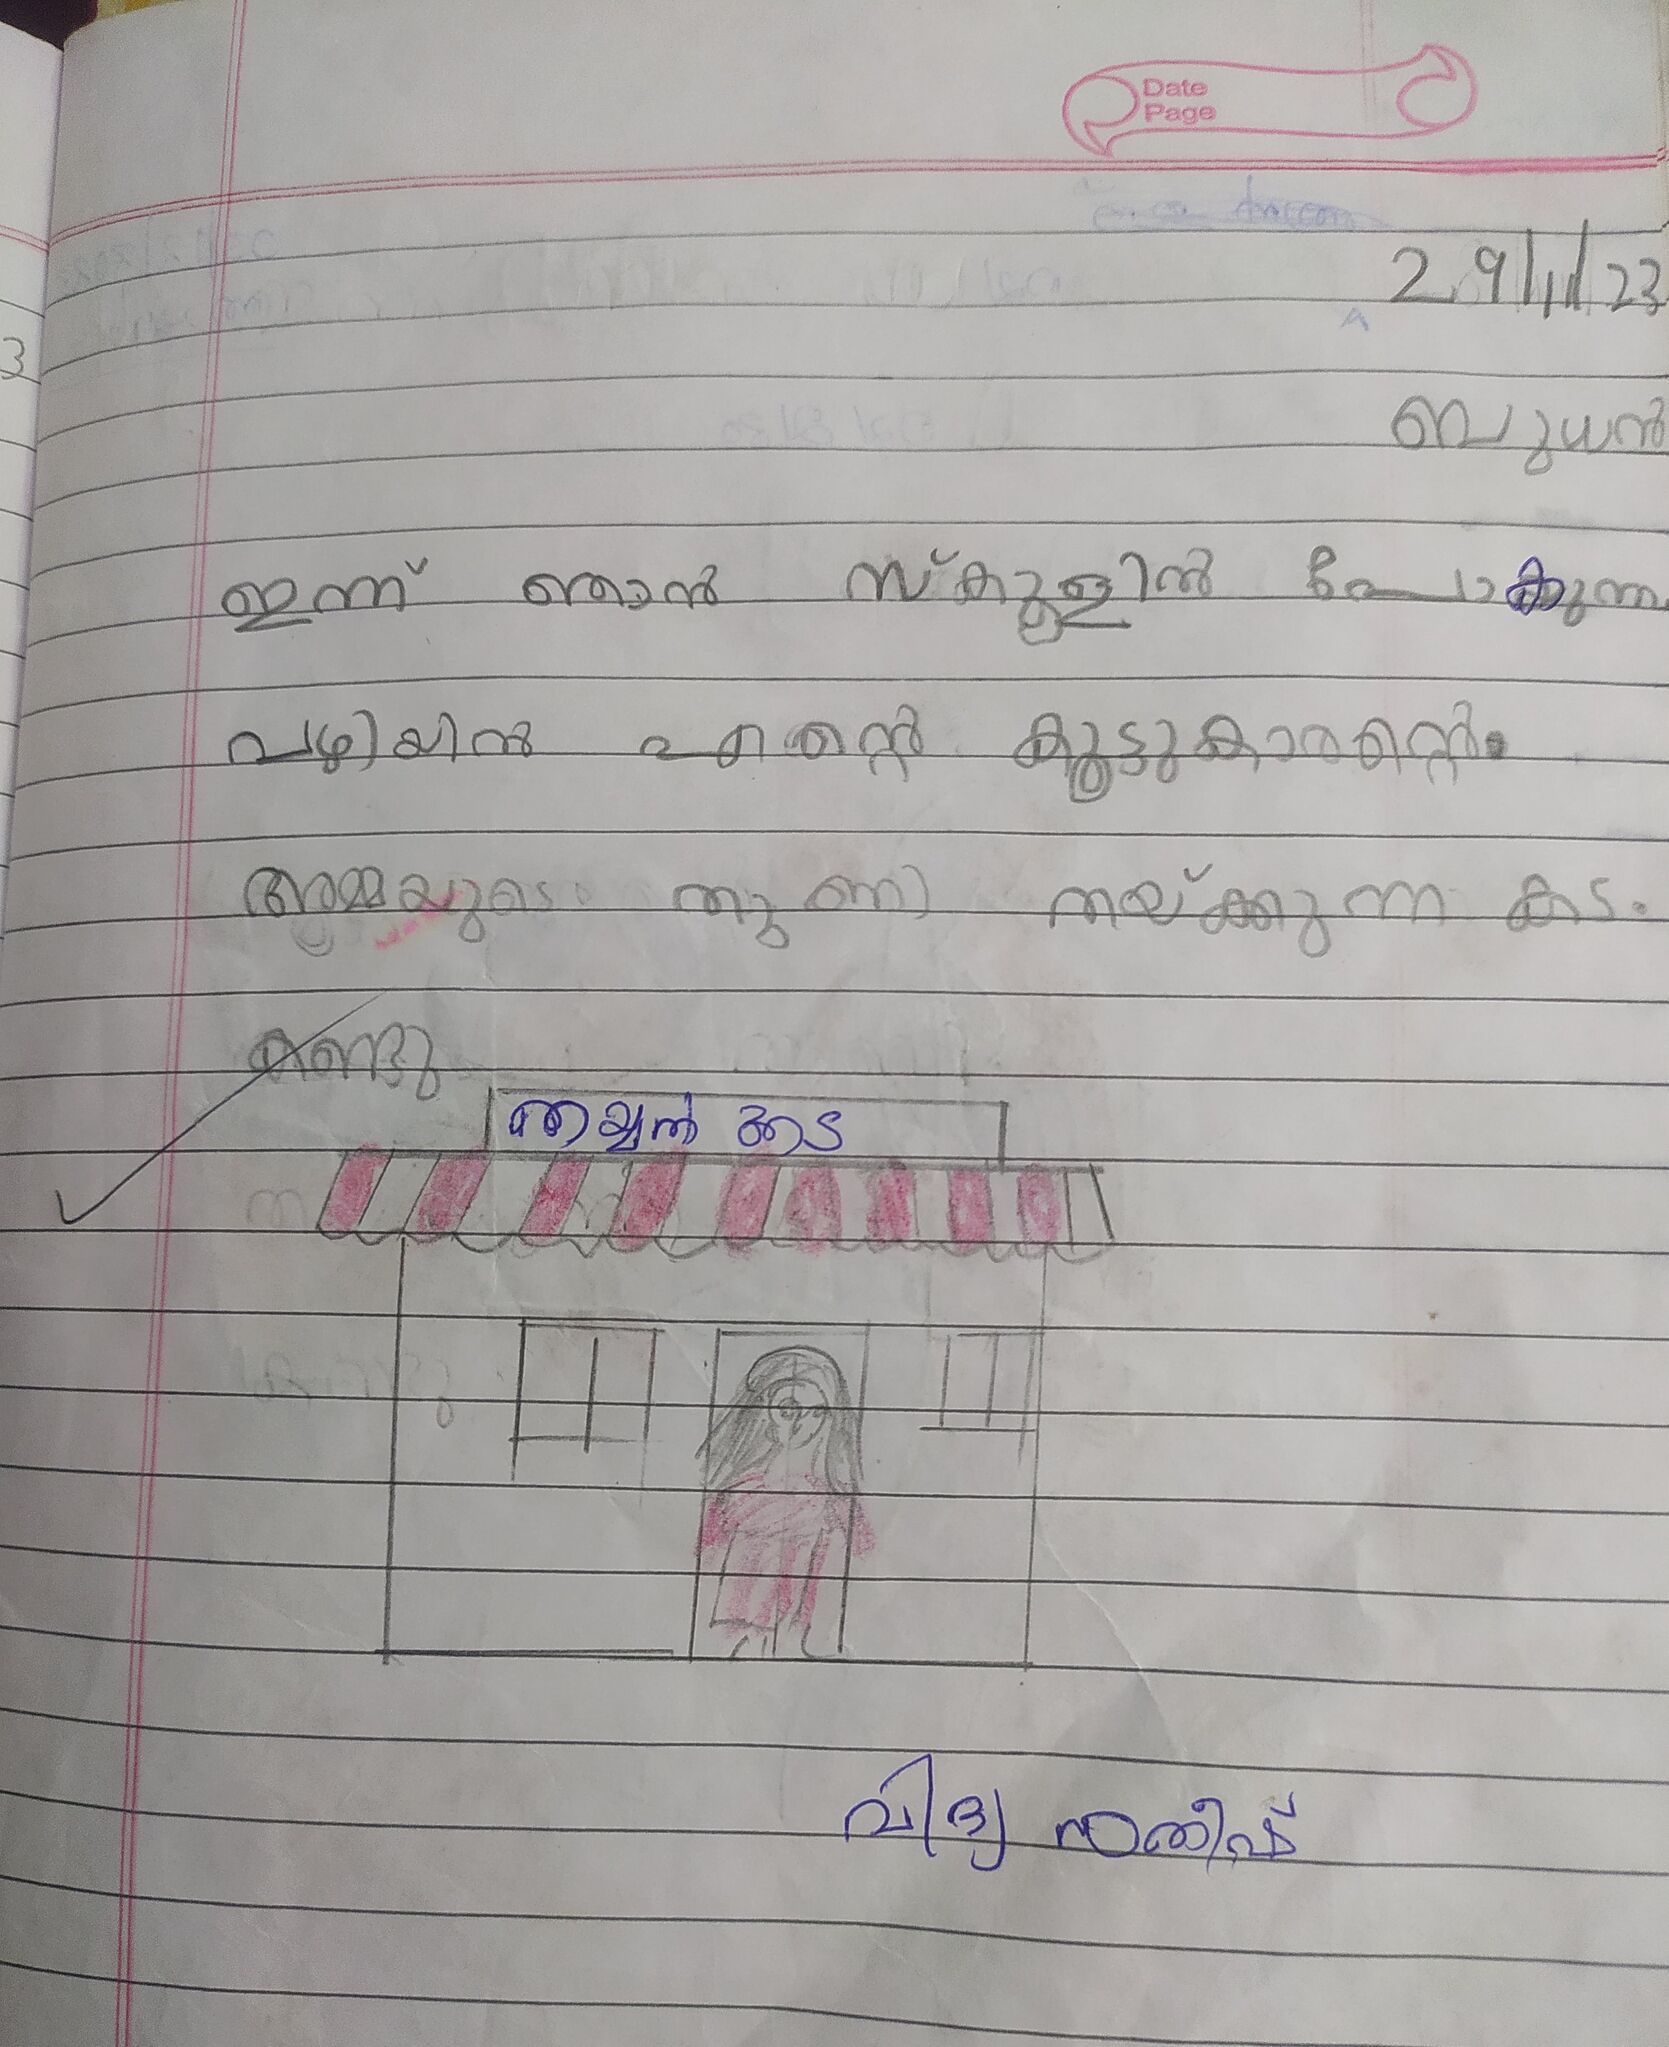 Date
Page
29/11/23
ബുധൻ
ഇന്ന് ഞാൻ സ്കൂളിൽ പോകുന്ന
വഴിയിൽ എൻ്റെ കൂട്ടുകാരൻ്റെ
അമ്മയുടെ തുണി തയ്ക്കുന്ന കട.
കണ്ടു
തയ്യൽ കട
വിദ്യ സതീഷ്